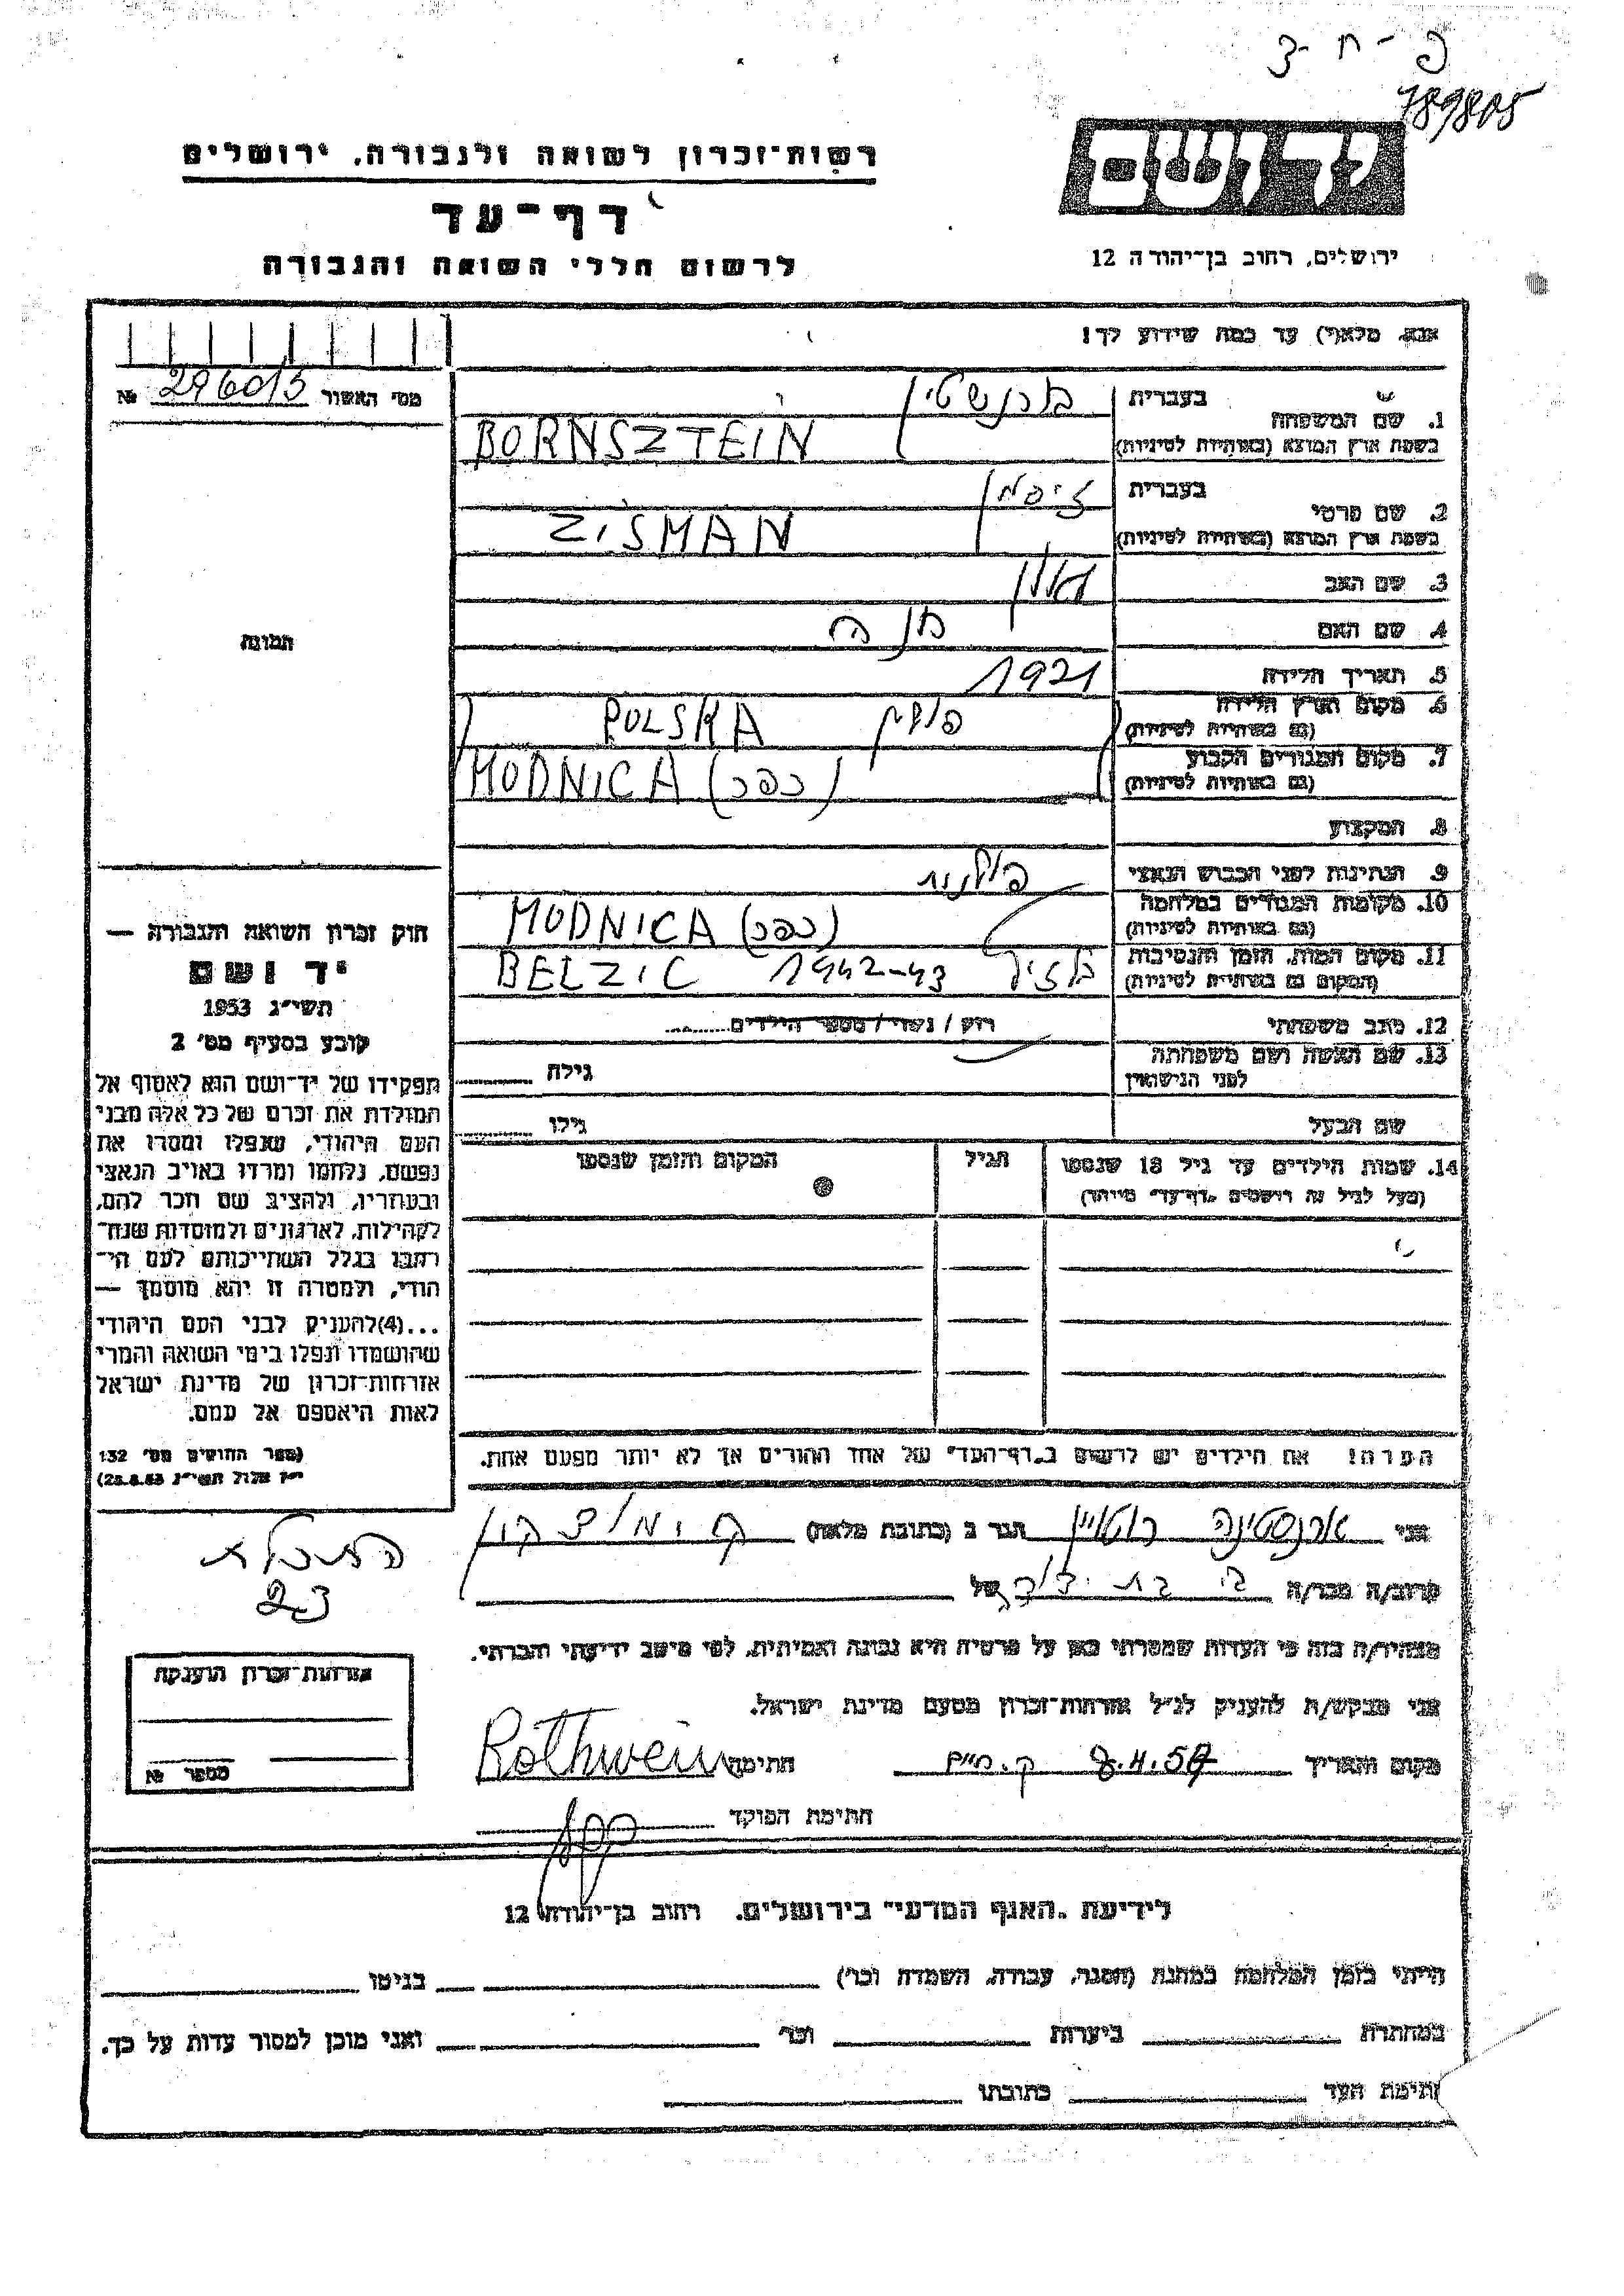 פ-ח-צ
789805
יד ושם
רשות-זכרון לשואה ולגבורה, ירושלים
דף-עד
לרשום חללי השואה והגבורה
ירושלים, רחוב בן-יהודה 12
אנא, מלא(י) עד כמה שידוע לך!
מס' האשור № 296015
1. שם המשפחה
בעברית בורנשטין
בשפת ארץ המוצא (באותיות לטיניות) BORNSZTEIN
2. שם פרטי
בעברית זיסמן
בשפת ארץ המוצא (באותיות לטיניות) ZISMAN
3. שם האב
4. שם האם חנה
5. תאריך הלידה 1921
6. מקום וארץ הלידה (גם באותיות לטיניות) פולין POLSKA
7. מקום המגורים הקבוע (גם באותיות לטיניות) MODNICA (כפר)
8. המקצוע
9. הנתינות לפני הכבוש הנאצי פולנית
10. מקומות המגורים במלחמה (גם באותיות לטיניות) MODNICA (כפר)
11. מקום המות, הזמן והנסיבות (המקום גם באותיות לטיניות) בלזיץ 1942-43 BELZIC
12. מצב משפחתי רוק / נשוי / מספר הילדים
13. שם האשה ושם משפחתה לפני הנישואין גילה
שם הבעל גילו
14. שמות הילדים עד גיל 18 שנספו
(מעל לגיל זה רושמים "דף-עד" מיוחד)
הגיל
המקום והזמן שנספו
הערה! את הילדים יש לרשום ב"דף-העד" של אחד ההורים אך לא יותר מפעם אחת.
תמונה
חוק זכרון השואה והגבורה —
יד ושם
תשי"ג 1953
קובע בסעיף מס' 2
תפקידו של יד-ושם הוא לאסוף אל
המולדת את זכרם של כל אלה מבני
העם היהודי, שנפלו ומסרו את
נפשם, נלחמו ומרדו באויב הנאצי
ובעוזריו, ולהציב שם וזכר להם,
לקהילות, לארגונים ולמוסדות שנח-
רבו בגלל השתייכותם לעם הי-
הודי, ולמטרה זו יהא מוסמך —
...(4)להעניק לבני העם היהודי
שהושמדו ונפלו בימי השואה והמרי
אזרחות-זכרון של מדינת ישראל
לאות היאספם אל עמם.
(ספר החוקים מס' 132
י"ז אלול תשי"ג 28.8.53)
אני ארנסטינה רוטויין הגר ב (כתובת מלאה) ק ימוצקין
התכלת
23
קרוב/ה מכר/ה בת דוד של
מצהיר/ה בזה כי העדות שמסרתי כאן על פרטיה היא נכונה ואמיתית, לפי מיטב ידיעתי והכרתי.
אני מבקש/ת להעניק לנ"ל אזרחות-זכרון מטעם מדינת ישראל.
מקום ותאריך ק. חיים 8.4.57 חתימה Rothwein
חתימת הפוקד
אזרחות-זכרון הוענקה
מספר №
לידיעת "האגף המדעי" בירושלים, רחוב בן-יהודה 12
הייתי בזמן המלחמה במחנה (הסגר, עבודה, השמדה וכו') בגיטו
במחתרת ביערות וכו' ואני מוכן למסור עדות על כך.
חתימת העד כתובתו